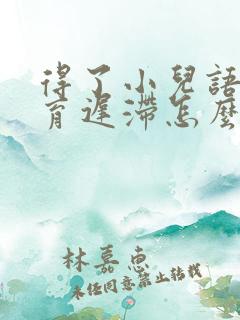 得了小兒語
育遲滯怎麼
林嘉惠
未任同意禁止转载